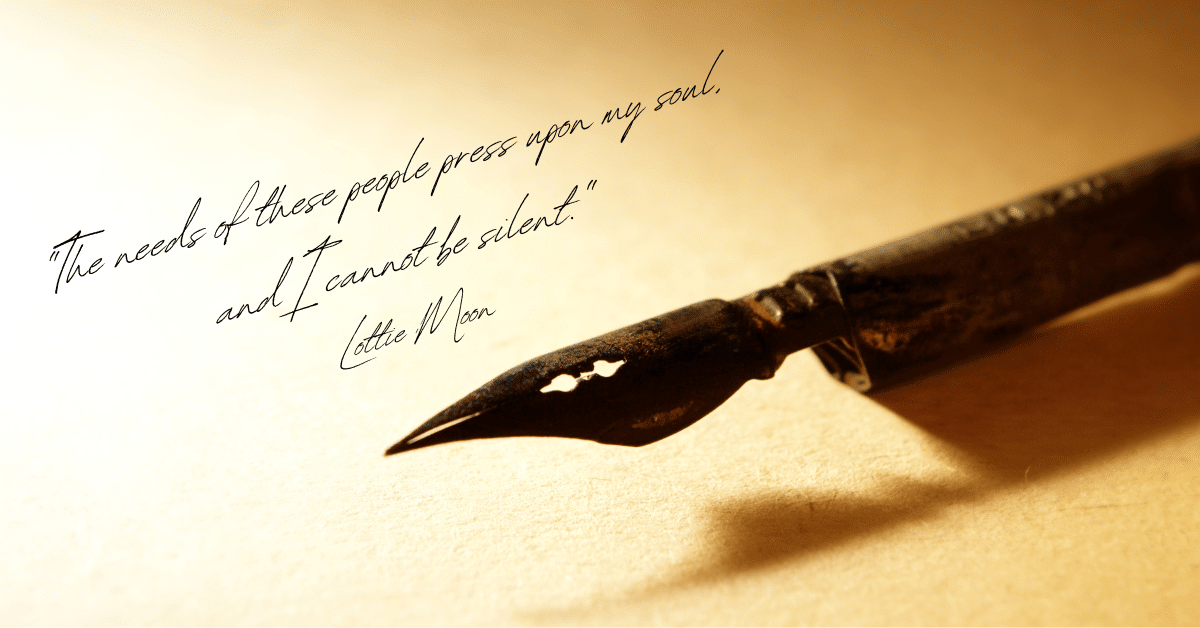 "The needs of these people press upon my soul,
and I cannot be silent."
Lottie Moon